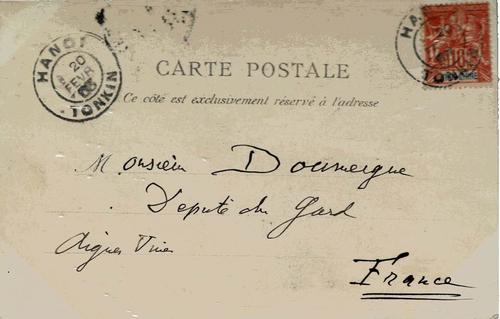 HANOI
20
FEVR
03
TONKIN
HANOI
20
TONKIN
10
CARTE POSTALE
Ce côté est exclusivement réservé à l'adresse
Monsieur Doumergue
Député du Gard
Aigues Vives
France